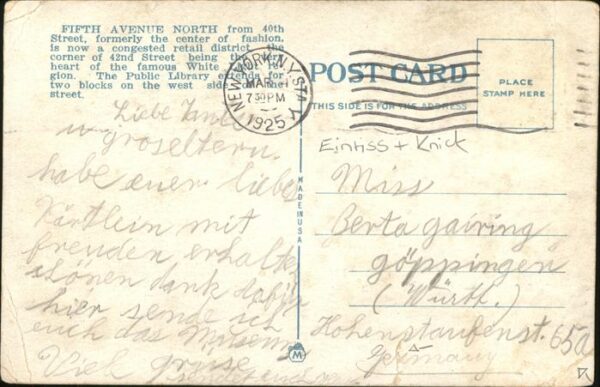 FIFTH AVENUE NORTH from 40th
Street, formerly the center of fashion,
is now a congested retail district, the
corner of 42nd Street being the very
heart of the famous White
gion. The Public Library extends for
two blocks on the west side of the
street.
NEW YORK, N.Y. STA. V
MAR
7 30 PM
1925
POST CARD
THIS SIDE IS FOR THE ADDRESS
PLACE
STAMP HERE
MADE IN USA
M
Einriss + Knick
Liebe
u groseltern.
habe euer liebes
Kärtlein mit
freuden erhalten
schönen dank dafür
hier sende ich
euch das Museum
Viele grüse
Miss
Berta gairing
göppingen
(Württ.)
Hohenstaufenst. 65a
Germany